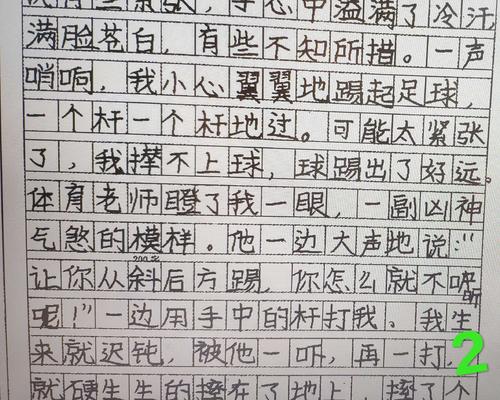 手心中溢满了冷汗,
满脸苍白，有些不知所措。一声
哨响，我小心翼翼地踢起足球，
一个杆一个杆地过。可能太紧张
了，我撵不上球，球踢出了好远。
体育老师瞪了我一眼，一副凶神
气煞的模样。他一边大声地说:“
让你从斜后方踢，你怎么就不听
200字
呢!”一边用手中的杆打我。我生
来就迟钝，被他一吓，再一打，
就硬生生的摔在了地上，摔了个
2